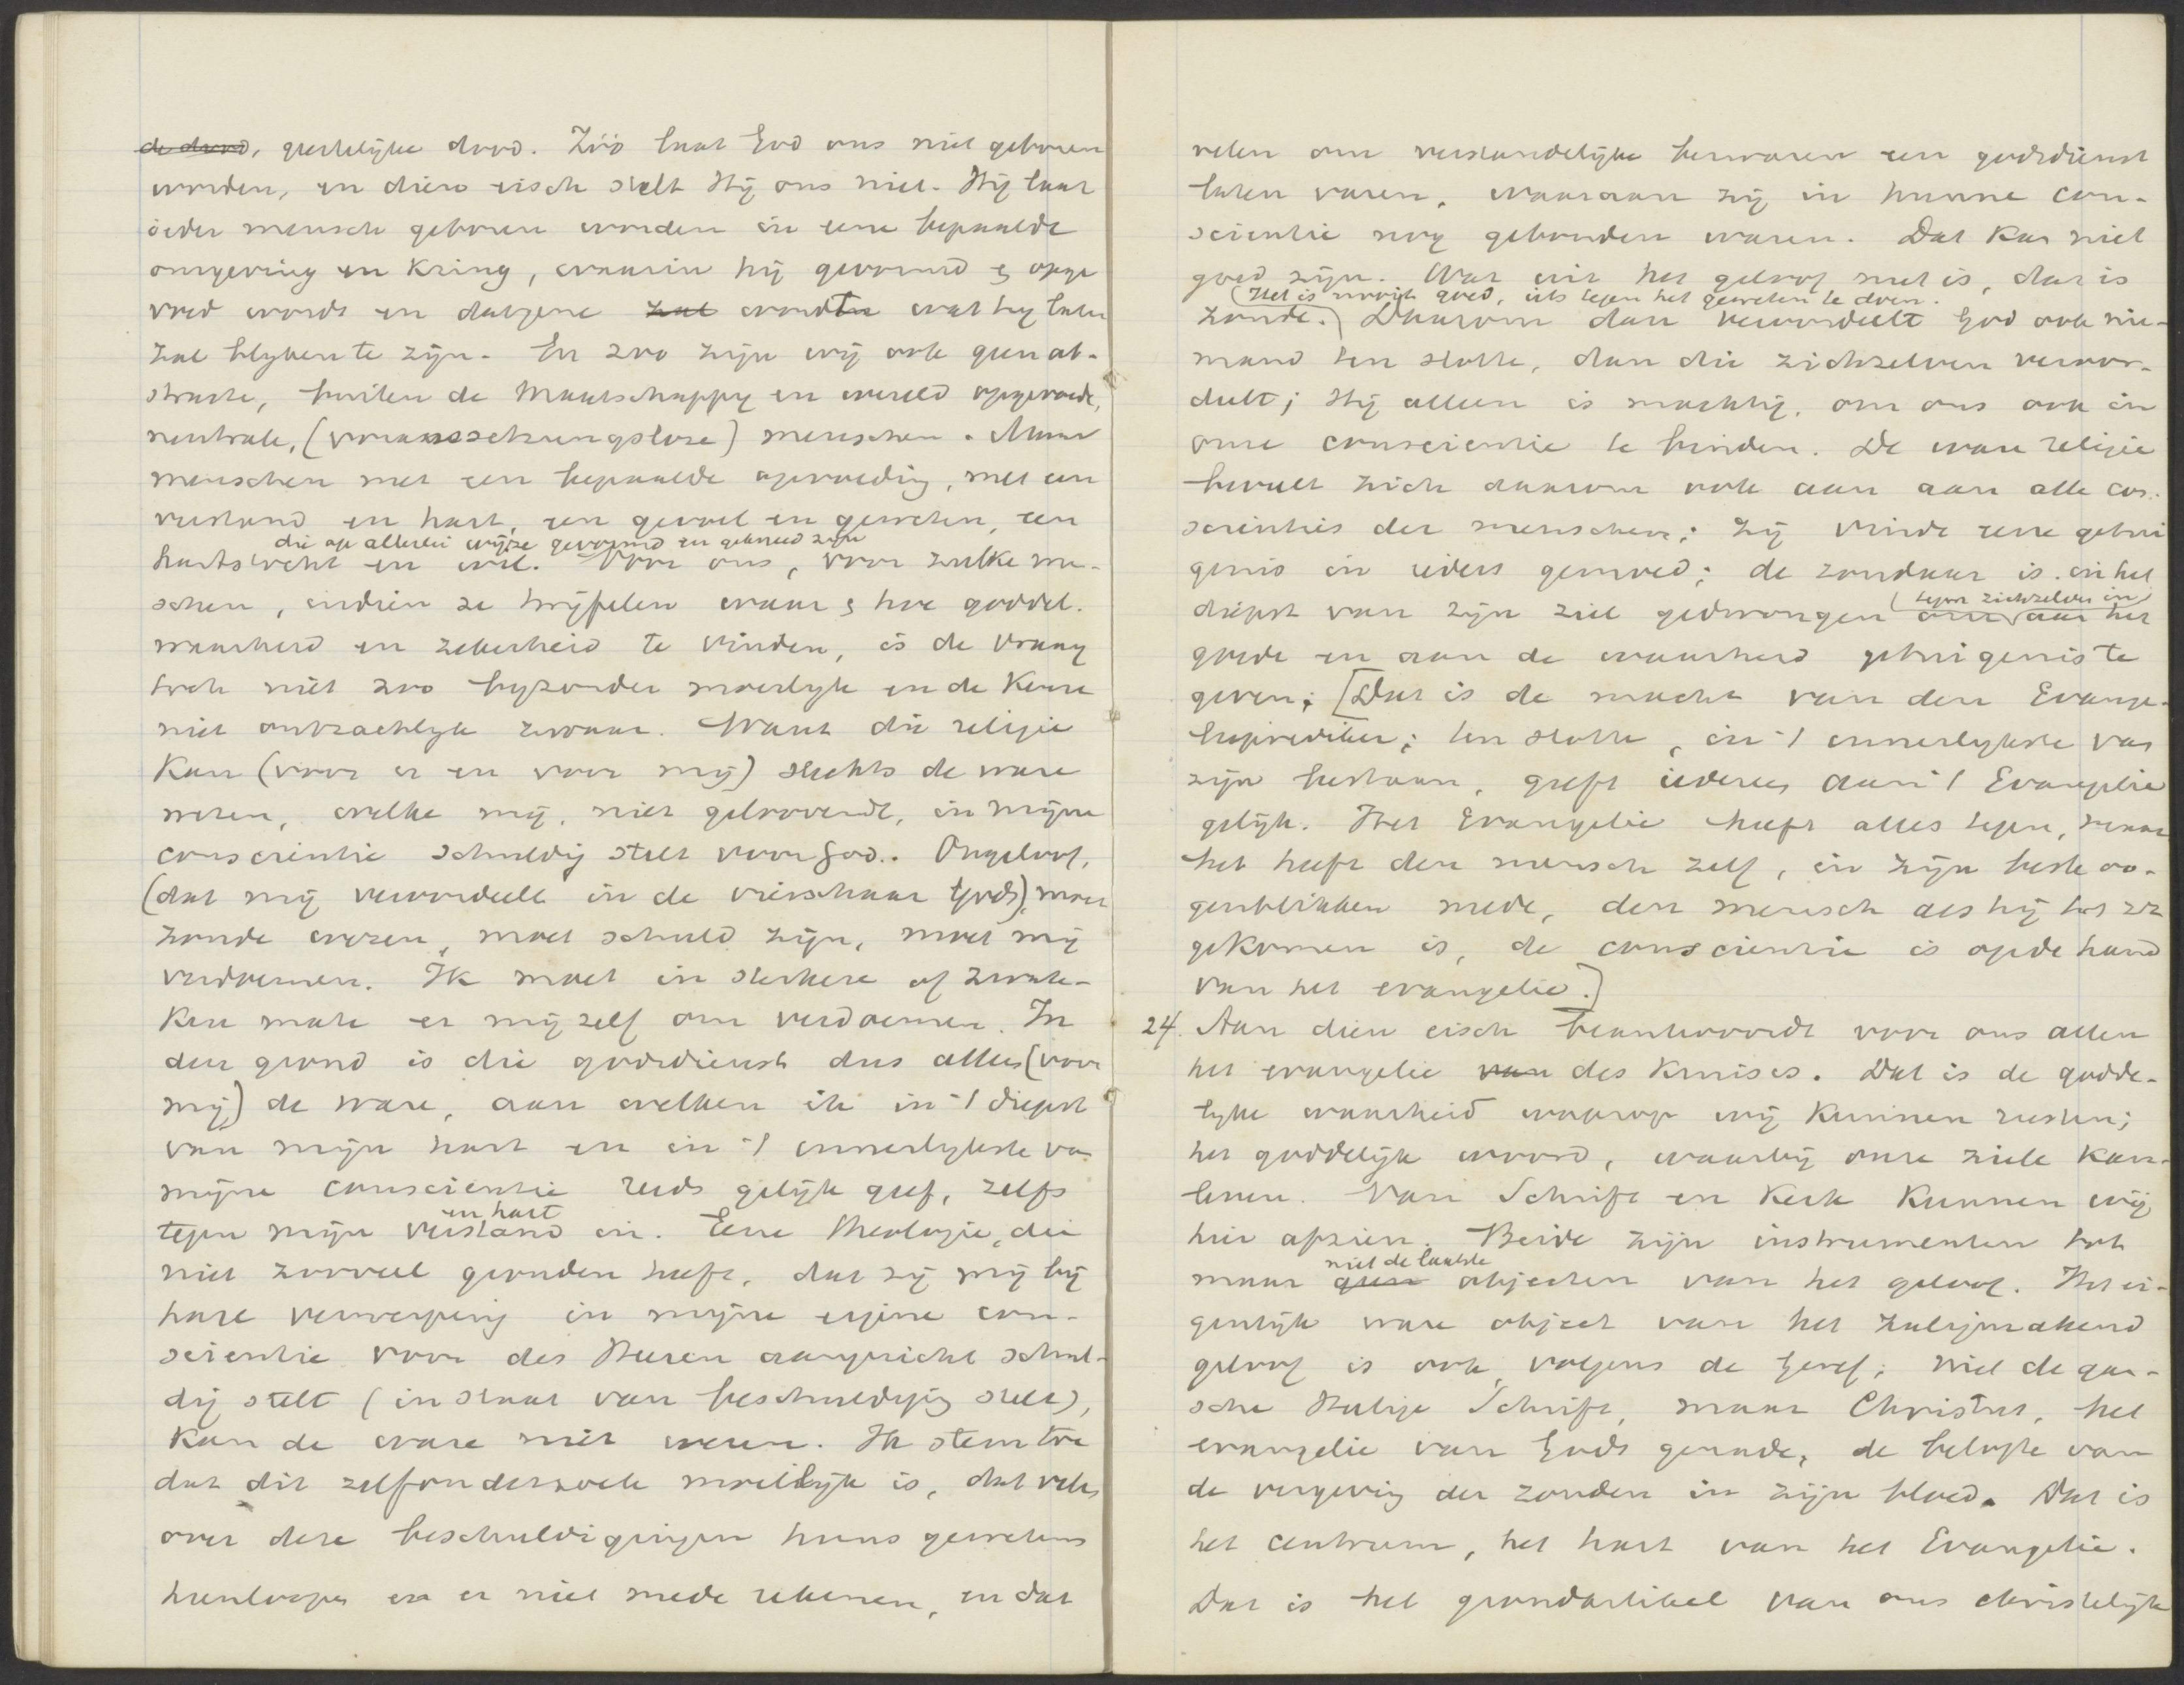 de dood, geestelijke dood. Zóó laat God ons niet geboren
worden, en dien eisch stelt Hij ons niet. Hij laat
ieder mensch geboren worden in eene bepaalde
omgeving en kring, waarin hij gevormd & opge
voed wordt en datgene zal wordt wat hij later
zal blijken te zijn. En zoo zijn wij ook geen ab-
stracte, buiten de maatschappij en wereld opgevoede,
neutrale, (voraussetzungslose) menschen. Maar
menschen met een bepaalde opvoeding, met een
verstand en hart, een gevoel en geweten, een
die op allerlei wijze gevormd en gekneed zijn
hartstocht en wil. Voor ons, voor zulke men-
schen, indien ze twijfelen waar & hoe goddel.
waarheid en zekerheid te vinden, is de vraag
toch niet zoo bijzonder moeilijk en de keuze
niet ontzachlijk zwaar. Want die religie
kan (voor en voor mij) slechts de ware
wezen, welke mij, niet geloovende, in mijne
conscientie schuldig stelt voor God. Ongeloof,
(dat mij veroordeelt in de vierschaar Gods), moet
zonde wezen, moet schuld zijn, moet mij
verdoemen. Ik moet in sterkere of zwak-
kere mate er mijzelf om verdoemen. In
den grond is die godsdienst dus alleen (voor
mij) de ware, aan welken ik in 't diepst
van mijn hart en in 't innerlijkste van
mijne conscientie reeds gelijk geef, zelfs
en hart
tegen mijn verstand in. Eene theologie, die
niet zooveel gronden heeft, dat zij mij bij
hare verwerping in mijne eigene con-
scientie voor des Heeren aangezicht schul-
dig stelt (in staat van beschuldiging stelt),
kan de ware niet wezen. Ik stem toe
dat dit zelfonderzoek moeilijk is, dat velen
over deze beschuldigingen huns gewetens
heenloopen en er niet mede rekenen, en dat
velen om verstandelijke bezwaren een godsdienst
laten varen, waaraan zij in hunne con-
scientie nog gebonden waren. Dat kan niet
goed zijn. Wat uit het geloof niet is, dat is
(Het is nooit goed, iets tegen het geweten te doen.
zonde.) Daarom dan veroordeelt God ook nie-
mand ten slotte, dan die zichzelven veroor-
deelt; Hij alleen is machtig, om ons ook in
onze conscientie te binden. De ware religie
beveelt zich daarom ook aan aan alle con-
scienties der menschen; zij vindt eene getui
genis in ieders gemoed; de zondaar is in het
tegen zichzelven in
diepst van zijn ziel gedwongen om aan het
goede en aan de waarheid getuigenis te
geven; [Dat is de macht van den Evange-
lieprediker; ten slotte, in 't innerlijkste van
zijn bestaan, geeft iedereen aan 't Evangelie
gelijk. Het Evangelie heeft alles tegen, maar
het heeft den mensch zelf, in zijn beste oo-
genblikken mede, den mensch als hij tot zz
gekomen is, de conscientie is op de hand
van het evangelie.]
24. Aan dien eisch beantwoordt voor ons allen
het evangelie van des Kruises. Dat is de godde-
lijke waarheid waarop wij kunnen rusten;
het goddelijk woord, waarbij onze ziele kan
leven. Van Schrift en Kerk kunnen wij
hier afzien. Beide zijn instrumenten toch
niet de laatste
maar geen objecten van het geloof. Het ei-
genlijk ware object van het zaligmakend
geloof is ook volgens de Geref. niet de gan-
sche Heilige Schrift, maar Christus, het
evangelie van Gods genade, de belofte van
de vergeving der zonden in zijn bloed. Dat is
het centrum, het hart van het Evangelie.
Dat is het grondartikel van ons christelijk